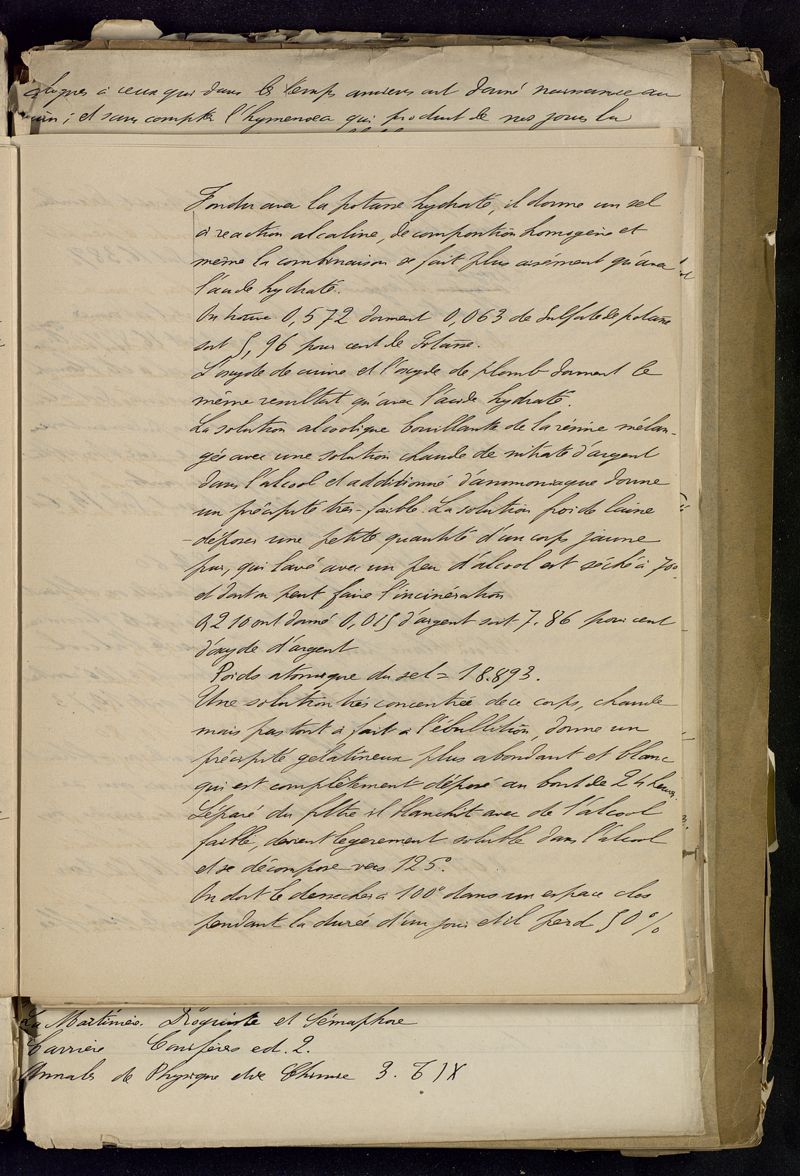 à ceux qui dans les temps anciens ont donné naissance au
; et sans compter l'hymenoea qui produit de nos jours la
Fondu avec la potasse hydratée, il donne un sel
à reaction alcaline, de composition homogène et
même la combinaison se fait plus aisément qu'avec
l'acide hydraté.
On trouve 0,572 donnent 0,063 de Sulfate de potasse
soit 5,96 pour cent de Potasse.
L'oxyde de cuivre et l'oxyde de plomb donnent le
même resultat qu'avec l'acide hydraté.
La solution alcoolique bouillante de la résine mélan-
gée avec une solution chaude de nitrate d'argent
dans l'alcool et additionné d'ammoniaque donne
un précipité très-faible. La solution froide laisse
déposer une petite quantité d'un corps jaune
pur, qui lavé avec un peu d'alcool est séché à 70°
et dont on peut faire l'incinération
0,210 ont donné 0,015 d'argent soit 7.86 pour cent
d'oxyde d'argent
Poids atomique du sel = 18.893.
Une solution très concentrée de ce corps, chaude
mais pas tout à fait à l'ébullition, donne un
précipité gélatineux plus abondant et blanc
qui est complètement déposé au bout de 24 heures.
Séparé du filtre il blanchit avec de l'alcool
faible, devient legerement soluble dans l'alcool
et se décompose vers 125°.
On doit le dessecher à 100° dans un espace clos
pendant la durée d'un jour et il perd 50 %
La Martinière. Droguiste et Sémaphore
Carrière Conifères ed. 2.
Annales de Physique et de Chimie 3. T IX